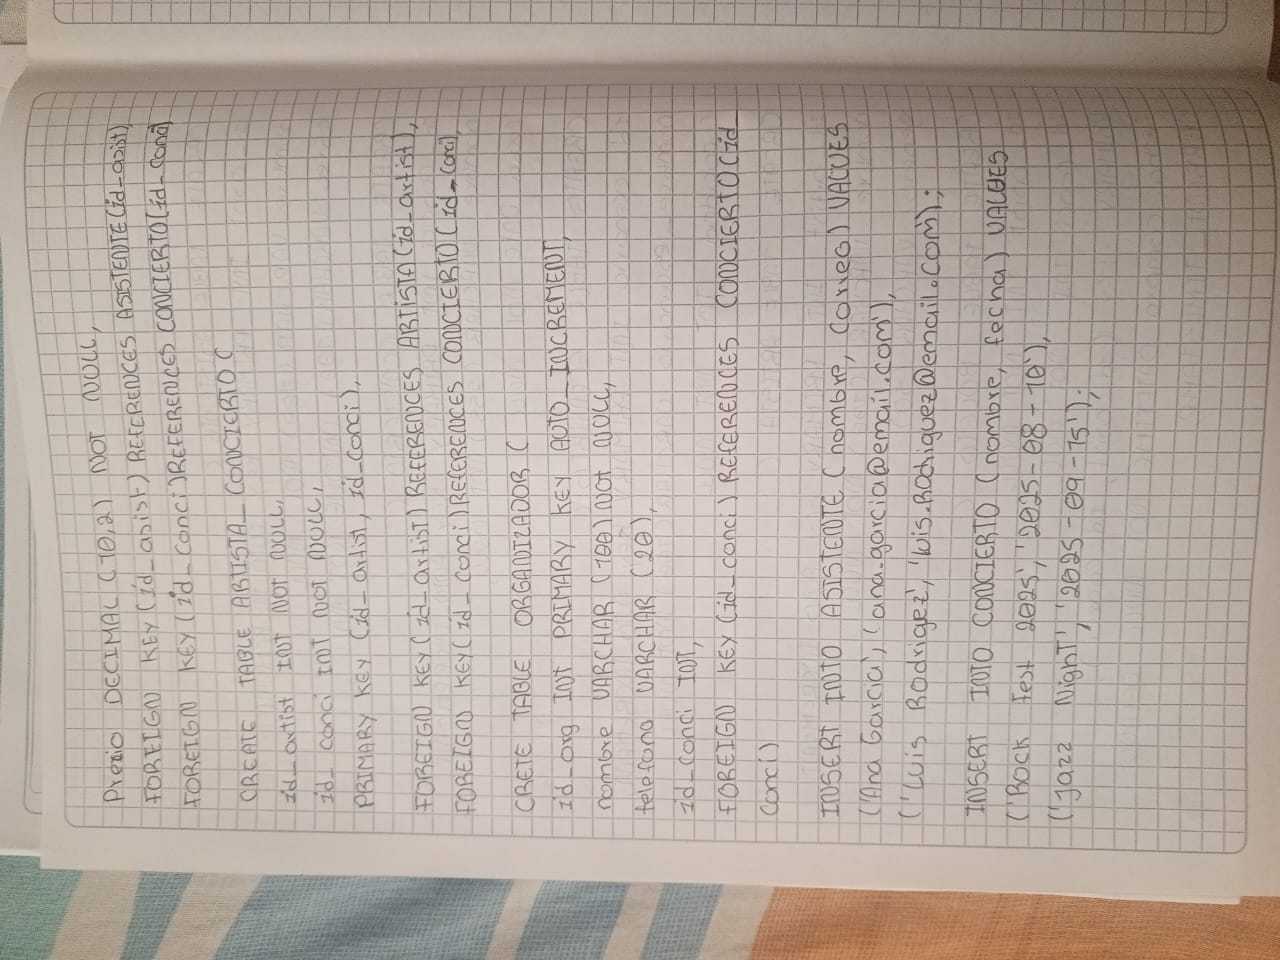 Precio DECIMAL (10,2) NOT NULL,
FOREIGN KEY (id_asist) REFERENCES ASISTENTE (id_asist)
FOREIGN KEY (id_conci) REFERENCES CONCIERTO (id_conci)
CREATE TABLE ARTISTA_CONCIERTO (
id_artist INT NOT NULL,
id_conci INT NOT NULL,
PRIMARY KEY (id_artist, id_conci),
FOREIGN KEY (id_artist) REFERENCES ARTISTA (id_artist),
FOREIGN KEY (id_conci) REFERENCES CONCIERTO (id_conci),
CRETE TABLE ORGANIZADOR (
id_org INT PRIMARY KEY AUTO_INCREMENT,
nombre VARCHAR (100) NOT NULL,
telefono VARCHAR (20),
id_conci INT,
FOREIGN KEY (id_conci) REFERENCES CONCIERTO (id_
conci)
INSERT INTO ASISTENTE (nombre, correo) VALUES
('Ana Garcia', 'ana.garcia@email.com'),
('Luis Rodriguez', 'luis.Rodriguez@email.com');
INSERT INTO CONCIERTO (nombre, fecha) VALUES
('Rock Fest 2025', '2025-08-10'),
('Jazz Night', '2025-09-15');